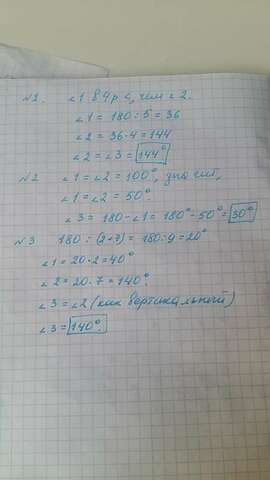 №1. ∠1 в 4 р <, чем ∠2.
∠1 = 180 : 5 = 36
∠2 = 36·4 = 144
∠2 = ∠3 = 144°
№2 ∠1 = ∠2 = 100°,
∠1 = ∠2 = 50°.
∠3 = 180 - ∠1 = 180° - 50° = 30°
№3 180 : (2+7) = 180 : 9 = 20°
∠1 = 20·2 = 40°
∠2 = 20·7 = 140°.
∠3 = ∠2 (как вертикальной)
∠3 = 140°.